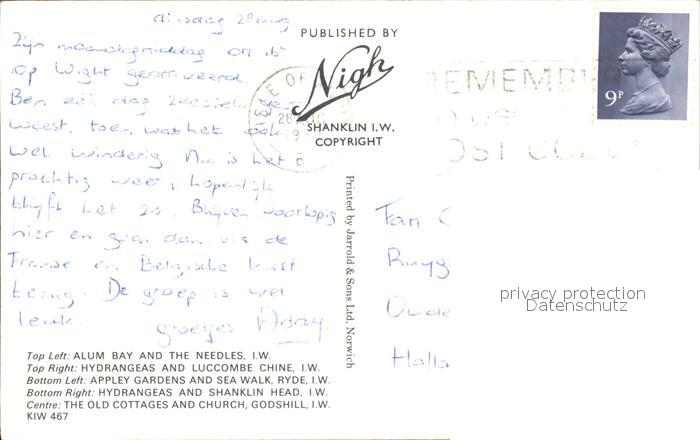 dinsdag 28 aug
Zijn maandagmiddag om 15
op Wight gearriveerd.
Ben een dag zeeziek ge
weest, toen was het ook
wel winderig Nu is het
prachtig weer, hopenlijk
blijft het zo. Blijven voorlopig
hier en gaan dan via de
Franse en Belgische kust
terug. De groep is wel
leuk. groetjes
PUBLISHED BY
Nigh
SHANKLIN I.W.
COPYRIGHT
ISLE OF
28
REMEMBER
POST CODE
9P
Printed by Jarrold & Sons Ltd. Norwich
Fam
Ruyg
Oude
Holla
privacy protection
Datenschutz
Top Left: ALUM BAY AND THE NEEDLES, I.W.
Top Right: HYDRANGEAS AND LUCCOMBE CHINE, I.W.
Bottom Left: APPLEY GARDENS AND SEA WALK, RYDE, I.W.
Bottom Right: HYDRANGEAS AND SHANKLIN HEAD, I.W.
Centre: THE OLD COTTAGES AND CHURCH, GODSHILL, I.W.
KIW 467